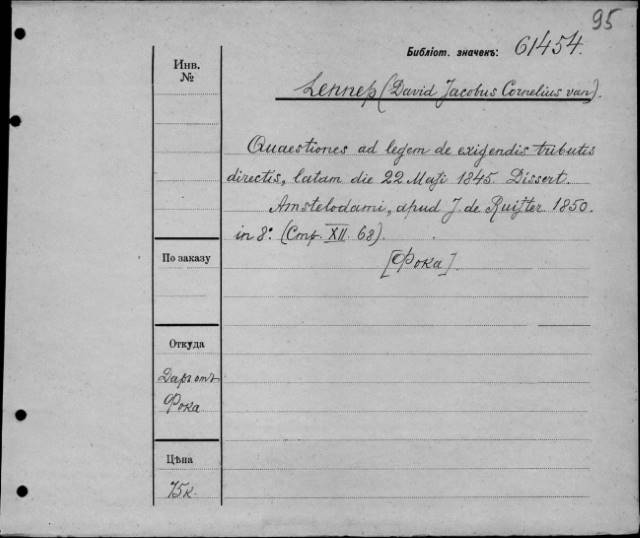 95
Библіот. значекъ: 61454.
Инв.
№
Lennep (David Jacobus Cornelius van).
Quaestiones ad legem de exigendis tributis
directis, latam die 22 Maji 1845. Dissert.
Amstelodami, apud J. de Ruijter 1850.
in 8º. (Conf XII 68).
По заказу
[Фока].
Откуда
Даръ отъ
Фока
Цѣна
75 к.